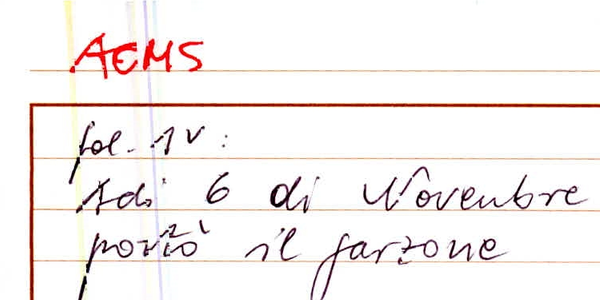 AEMS
fol. 1v:
Adi 6 di Novenbre
portò il garzone